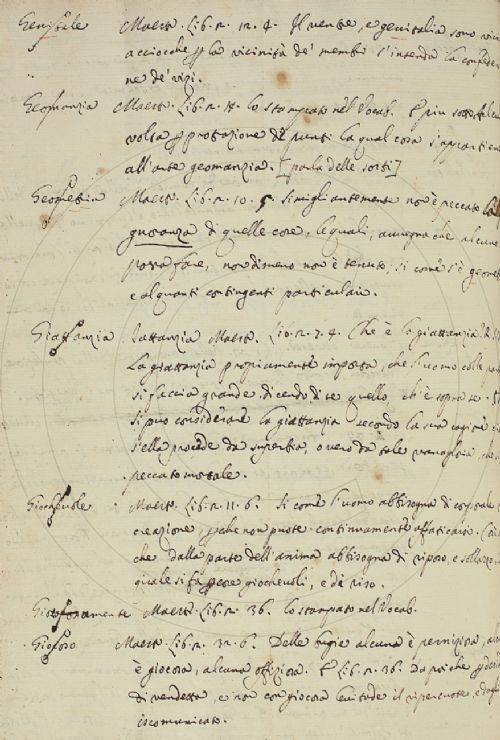 Genitale Maestr. Lib. 2. 12. 4. Il ventre, e genitalia sono vici
acciocchè per la vicinità de' membri s'intenda la confede
ne de' vizi.
Geomanzia Maestr. Lib. 2. lo stampato nel Vocab. E più sotto: alcun
volta per protrazione di punti la qual cosa s'appartiene
all'arte geomanzia. [parla delle sorti]
Geometria Maestr. Lib. 2. 10. 5. Simigliantemente non è peccato la
gnoranza di quelle cose, le quali, avvegna che alcuno
possa fare, nondimeno non è tenuto, si come s'è geomet
e alquanti contingenti particulari.
Giattanzia Jattanzia Maestr. Lib. 2. 7. 4. Che è la giattanzia? R.
La giattanzia propiamente importa, che l'uomo colle
si faccia grande, dicendo di se quello, ch'è sopra se.
si può considerare la giattanzia secondo la sua cagione
s'ella procede da superbia, o vero da tale vanagloria, che
peccato mortale.
Giochevole Maestr. Lib. 2. 11. 6. Si come l'uomo abbisogna di corporale
creazione, perchè non puote continuamente affaticarsi.
che dalla parte dell'anima abbisogna di riposo, e sollazzo,
quale si fa per cose giochevoli, e di riso.
Giocosamente Maestr. Lib. 2. 36. lo stampato nel Vocab.
Giocoso Maestr. Lib. 2. 32. 6. Delle bugie alcuna è perniziosa, al
è giocosa, alcuna offiziosa. E Lib. 2. 36. Da poi che
di vendetta, e non con giocosa levitude il ripercuote,
iscomunicato.